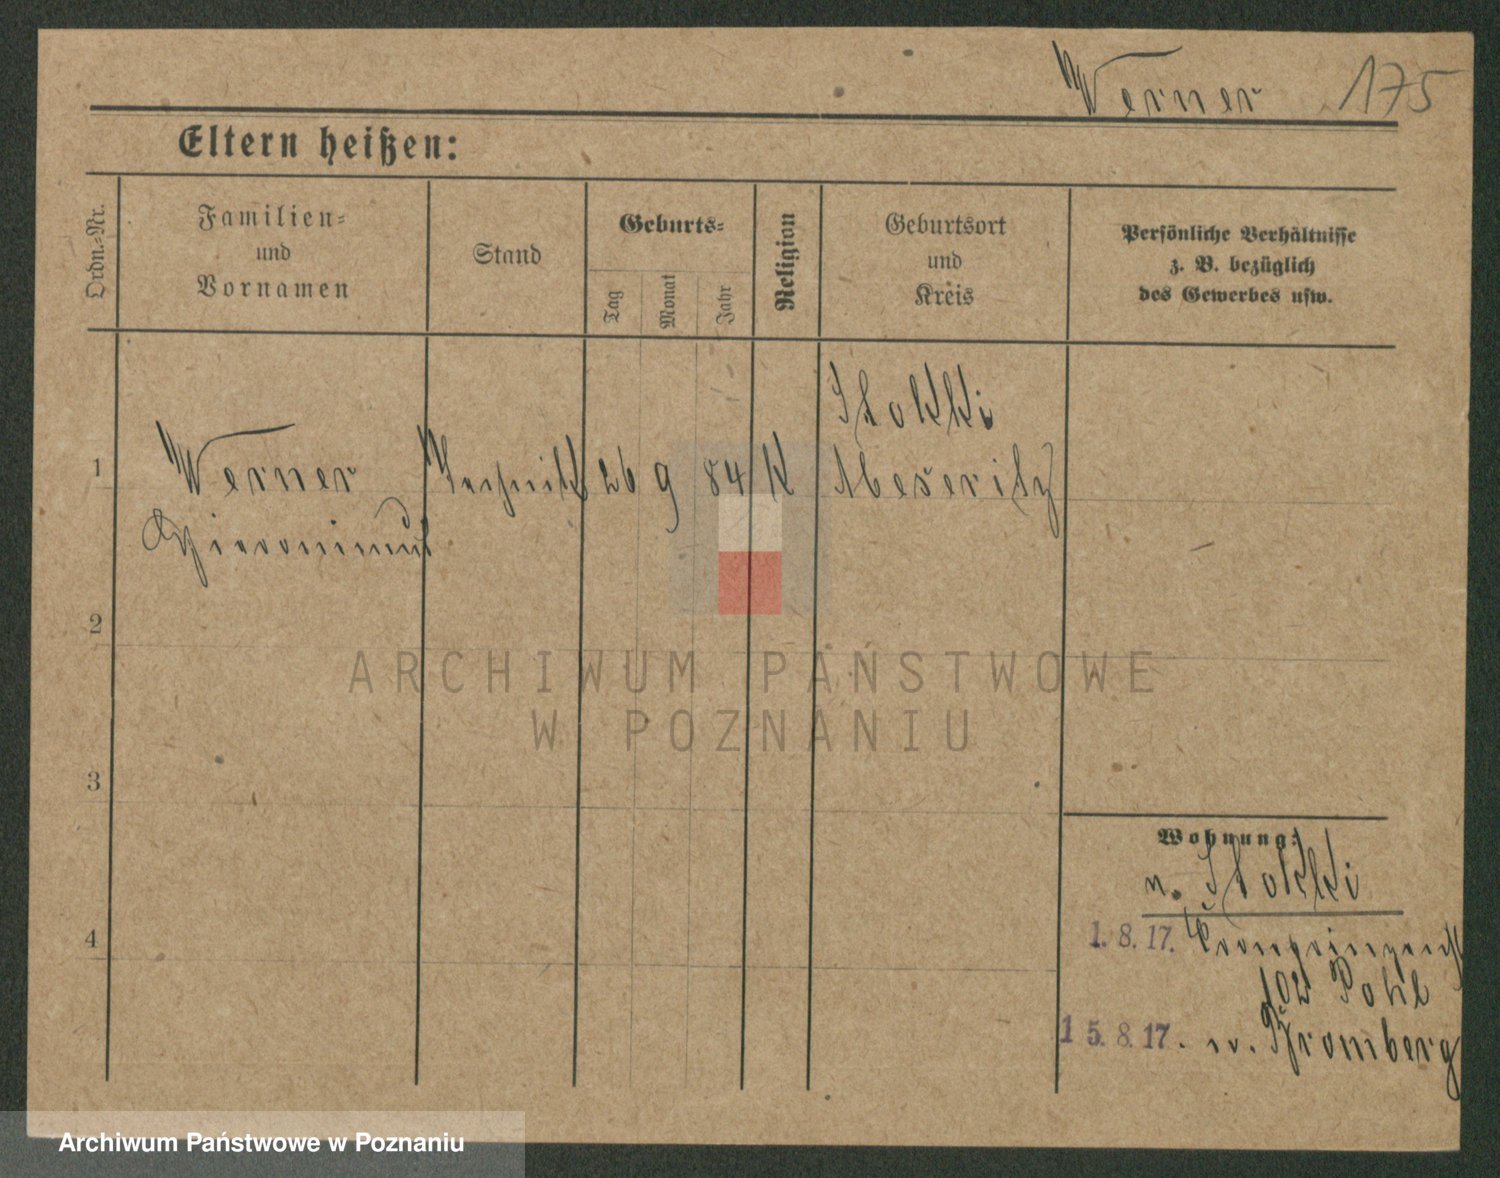 Werner 175
Eltern heißen:
Ordn.=Nr.
Familien=
und
Vornamen
Stand
Geburts=
Tag
Monat
Jahr
Religion
Geburtsort
und
Kreis
Persönliche Verhältnisse
z. B. bezüglich
des Gewerbes usw.
Stokki
1 Werner Technik 26 9 84 K Meseritz
Hieronimus
2
3
4
ARCHIWUM PAŃSTWOWE
W POZNANIU
Wohnung:
n. Stokki
1. 8. 17. Cronprinzenst
102 Pohl
15. 8. 17. n. Bromberg
Archiwum Państwowe w Poznaniu